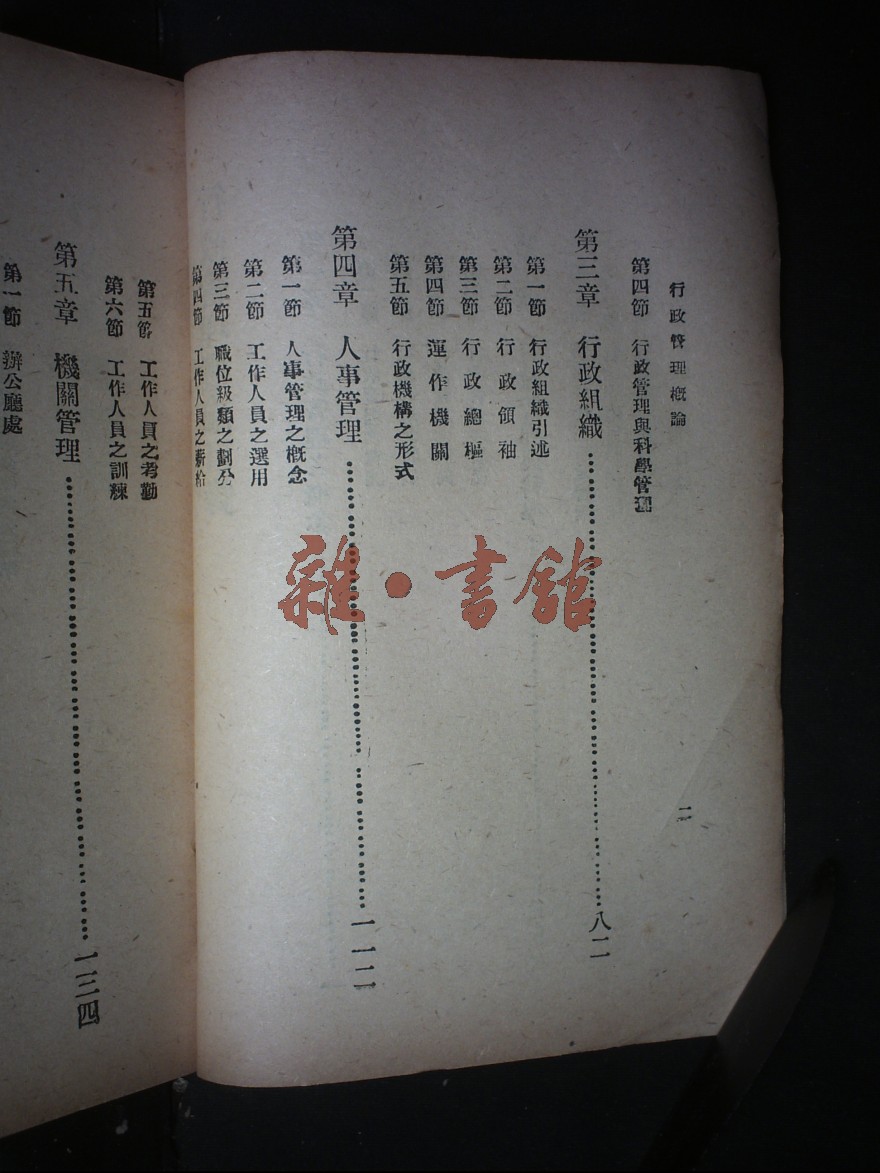 行政管理概論
二
第四節 行政管理與科學管理
第三章 行政組織……八二
第一節 行政組織引述
第二節 行政領袖
第三節 行政總樞
第四節 運作機關
第五節 行政機構之形式
第四章 人事管理……一一二
第一節 人事管理之概念
第二節 工作人員之選用
第三節 職位級類之劃分
第四節 工作人員之薪給
第五節 工作人員之考勤
第六節 工作人員之訓練
第五章 機關管理……一三四
第一節 辦公廳處
雜·書館